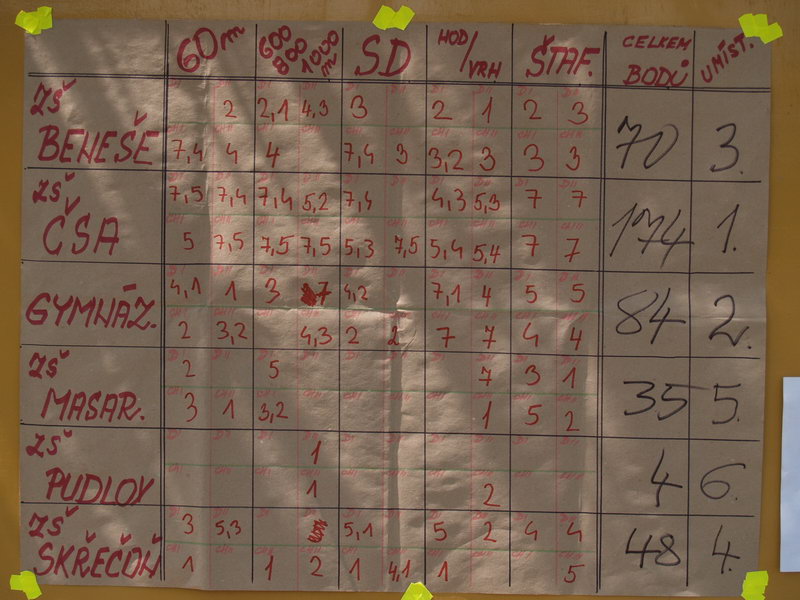 60m 600 800 1000 m SD HOD/VRH ŠTAF. CELKEM BODŮ UMÍST.
ZŠ 2 2,1 4,3 3 2 1 2 3
BENEŠE 7,4 4 4 7,4 3 3,2 3 3 3 70 3.
ZŠ 7,5 7,4 7,4 5,2 7,4 4,3 5,3 7 7
ČSA 5 7,5 7,5 7,5 5,3 7,5 5,4 5,4 7 7 174 1.
4,1 1 3 7 4,2 7,1 4 5 5
GYMNÁZ. 2 3,2 4,3 2 2 7 7 4 4 84 2.
ZŠ 2 5 7 3 1
MASAR. 3 1 3,2 1 5 2 35 5.
ZŠ 1
PUDLOV 1 2 4 6.
ZŠ 3 5,3 5,1 5 2 4 4
SKŘEČOŇ 1 1 2 1 4,1 1 5 48 4.